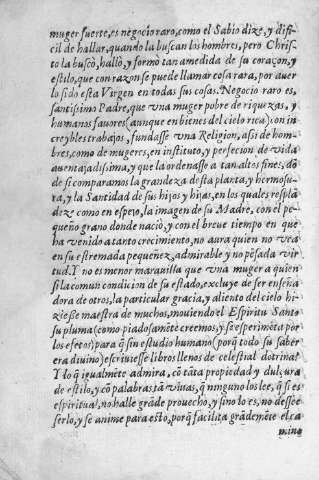 muger fuerte, es negocio raro, como el Sabio dize, y difi-
cil de hallar, quando la buscan los hombres, pero Chris-
to la buscò, hallò, y formò tan a medida de su coraçon, y
estilo, que con razon se puede llamar cosa rara, por auer
lo sido esta Virgen en todas sus cosas. Negocio raro es,
santissimo Padre, que vna muger pobre de riquezas, y
humanos fauores (aunque en bienes del cielo rica) con in-
creybles trabajos, fundasse vna Religion, assi de hom-
bres, como de mugeres, en instituto, y perfecion de vida
auentajadissima, y que la ordenasse a tan altos fines, dō
de si comparamos la grandeza desta planta, y hermosu-
ra, y la Santidad de sus hijos y hijas, en los quales resplā
dize como en espejo, la imagen de su Madre, con el pe-
queño grano donde naciò, y con el breue tiempo en que
ha venido a tanto crecimiento, no aura quien no vea
en su estremada pequeñez, admirable y no pēsada vir-
tud. Y no es menor marauilla que vna muger a quien
si la comun condicion de su estado, excluye de ser enseña
dora de otros, la particular gracia, y aliento del cielo hi-
ziesse maestra de muchos, mouiendo el Espiritu Santo
su pluma (como piadosamēte creemos, y se esperimēta por
los efetos) para q̄ sin estudio humano (porq̄ todo su saber
era diuino) escriuiesse libros llenos de celestial dotrina?
Y lo q̄ igualmēte admira, cō tāta propiedad y dulçura
de estilo, y cō palabras tā viuas, q̄ ninguno los lee, q̄ si es
espiritual, no halle grāde prouecho, y sino lo es, no dessee
serlo, y se anime para esto, porq̄ facilita grādemēte el ca
mino